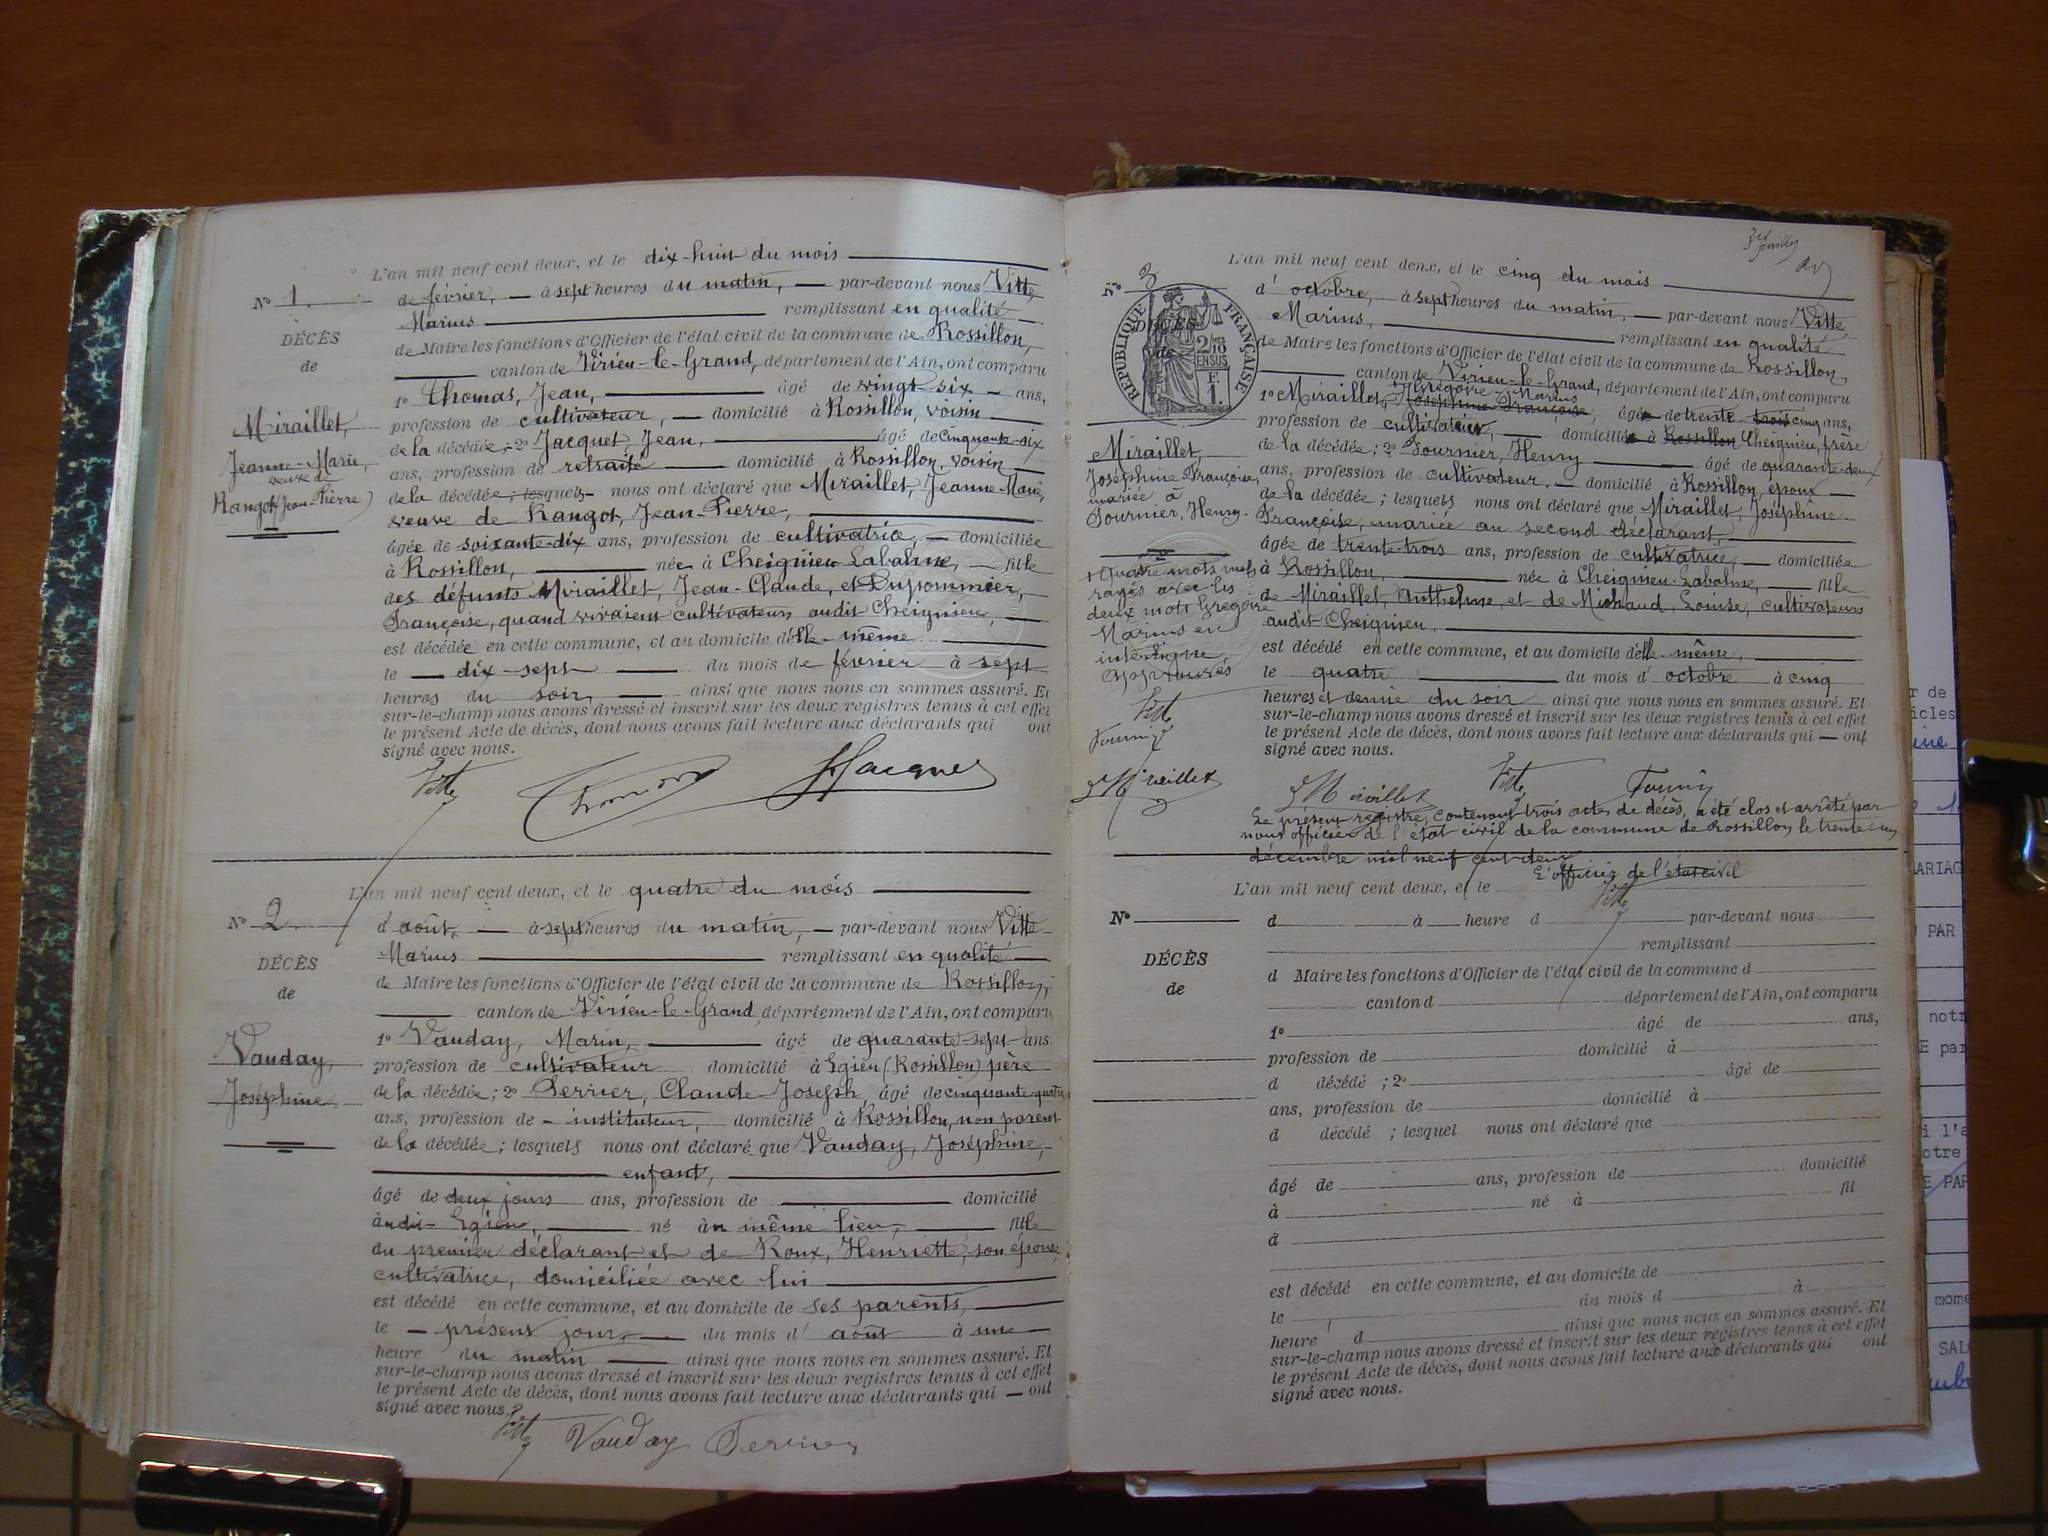 L'an mil neuf cent deux, et le dix-huit du mois
N° 1.
de février, à sept heures du matin, par-devant nous Vitte,
Marius remplissant en qualité
DÉCÈS
de Maire les fonctions d'Officier de l'état civil de la commune de Rossillon,
de
canton de Virieu-le-Grand, département de l'Ain, ont comparu
1° Thomas, Jean, âgé de vingt-six ans,
profession de cultivateur, domicilié à Rossillon, voisin
Miraillet,
Jeanne-Marie,
veuve de
Rangot (Jean-Pierre)
de la décédée; 2° Jacquet, Jean, âgé de cinquante-six
ans, profession de retraité domicilié à Rossillon, voisin
de la décédée; lesquels nous ont déclaré que Miraillet, Jeanne Marie,
veuve de Rangot, Jean-Pierre,
âgée de soixante-dix ans, profession de cultivatrice, domiciliée
à Rossillon, née à Cheignieu-Labalme, fille
des défunts Miraillet, Jean-Claude, et Dupommier,
Françoise, quand vivaient cultivateurs audit Cheignieu,
est décédée en cette commune, et au domicile d'elle-même
le dix-sept du mois de février à sept
heures du soir, ainsi que nous nous en sommes assuré. Et
sur-le-champ nous avons dressé et inscrit sur les deux registres tenus à cet effet
le présent Acte de décès, dont nous avons fait lecture aux déclarants qui ont
signé avec nous.
Vitte Thomas Jacquet
L'an mil neuf cent deux, et le quatre du mois
N° 2.
d'août, à sept heures du matin, par-devant nous Vitte
Marius remplissant en qualité
DÉCÈS
de Maire les fonctions d'Officier de l'état civil de la commune de Rossillon,
de
canton de Virieu-le-Grand, département de l'Ain, ont comparu
1° Vauday, Marin, âgé de quarante-sept ans
Vauday,
Joséphine
profession de cultivateur domicilié à Egieu (Rossillon) père
de la décédée; 2° Perrier, Claude-Joseph, âgé de cinquante-quatre
ans, profession de instituteur, domicilié à Rossillon, non parent
de la décédée; lesquels nous ont déclaré que Vauday, Joséphine,
enfant,
âgé de deux jours ans, profession de domicilié
audit Egieu, né au même lieu, fille
du premier déclarant et de Roux, Henriette, son épouse,
cultivatrice, domiciliée avec lui
est décédé en cette commune, et au domicile de ses parents,
le présent jour, du mois d'août à une
heure du matin ainsi que nous nous en sommes assuré. Et
sur-le-champ nous avons dressé et inscrit sur les deux registres tenus à cet effet
le présent Acte de décès, dont nous avons fait lecture aux déclarants qui ont
signé avec nous.
Vitte Vauday Perrier
3e feuillet
L'an mil neuf cent deux, et le cinq du mois
N° 3
RÉPUBLIQUE FRANÇAISE
2/10 EN SUS
F. 1.
d'octobre, à sept heures du matin, par-devant nous Vitte,
Marius, remplissant en qualité
DÉCÈS
de
de Maire les fonctions d'Officier de l'état civil de la commune de Rossillon,
canton de Virieu-le-Grand, département de l'Ain, ont comparu
Grégoire-Marius
1° Miraillet, Joséphine Françoise, âgé de trente-trois cinq ans,
profession de cultivateur, domicilié à Rossillon Cheignieu, frère
Miraillet,
Joséphine Françoise,
mariée à
Fournier, Henry.
de la décédée; 2° Fournier, Henry âgé de quarante-deux
ans, profession de cultivateur, domicilié à Rossillon, époux
de la décédée; lesquels nous ont déclaré que Miraillet, Joséphine
Françoise, mariée au second déclarant,
âgée de trente-trois ans, profession de cultivatrice, domiciliée
à Rossillon, née à Cheignieu-Labalme, fille
de Miraillet, Anthelme, et de Michaud, Louise, cultivateurs
audit Cheignieu,
+ Quatre mots nuls
rayés avec les
deux mots Grégoire
Marius en
interligne
approuvés
Vitte
Fournier
Miraillet
est décédé en cette commune, et au domicile d'elle-même,
le quatre du mois d'octobre à cinq
heures et demie du soir ainsi que nous nous en sommes assuré. Et
sur-le-champ nous avons dressé et inscrit sur les deux registres tenus à cet effet
le présent Acte de décès, dont nous avons fait lecture aux déclarants qui ont
signé avec nous.
Miraillet Vitte Fournier
Le présent registre, contenant trois actes de décès, a été clos et arrêté par
nous officier de l'état civil de la commune de Rossillon le trente un
décembre mil neuf cent deux
L'officier de l'état civil
Vitte
L'an mil neuf cent deux, et le
N°
d à heure d par-devant nous
remplissant
DÉCÈS
d Maire les fonctions d'Officier de l'état civil de la commune d
de
canton d département de l'Ain, ont comparu
1° âgé de ans,
profession de domicilié à
d décédé ; 2° âgé de
ans, profession de domicilié à
d décédé ; lesquel nous ont déclaré que
âgé de ans, profession de domicilié
à né à fil
d
est décédé en cette commune, et au domicile de
le du mois d à
heure d ainsi que nous nous en sommes assuré. Et
sur-le-champ nous avons dressé et inscrit sur les deux registres tenus à cet effet
le présent Acte de décès, dont nous avons fait lecture aux déclarants qui ont
signé avec nous.